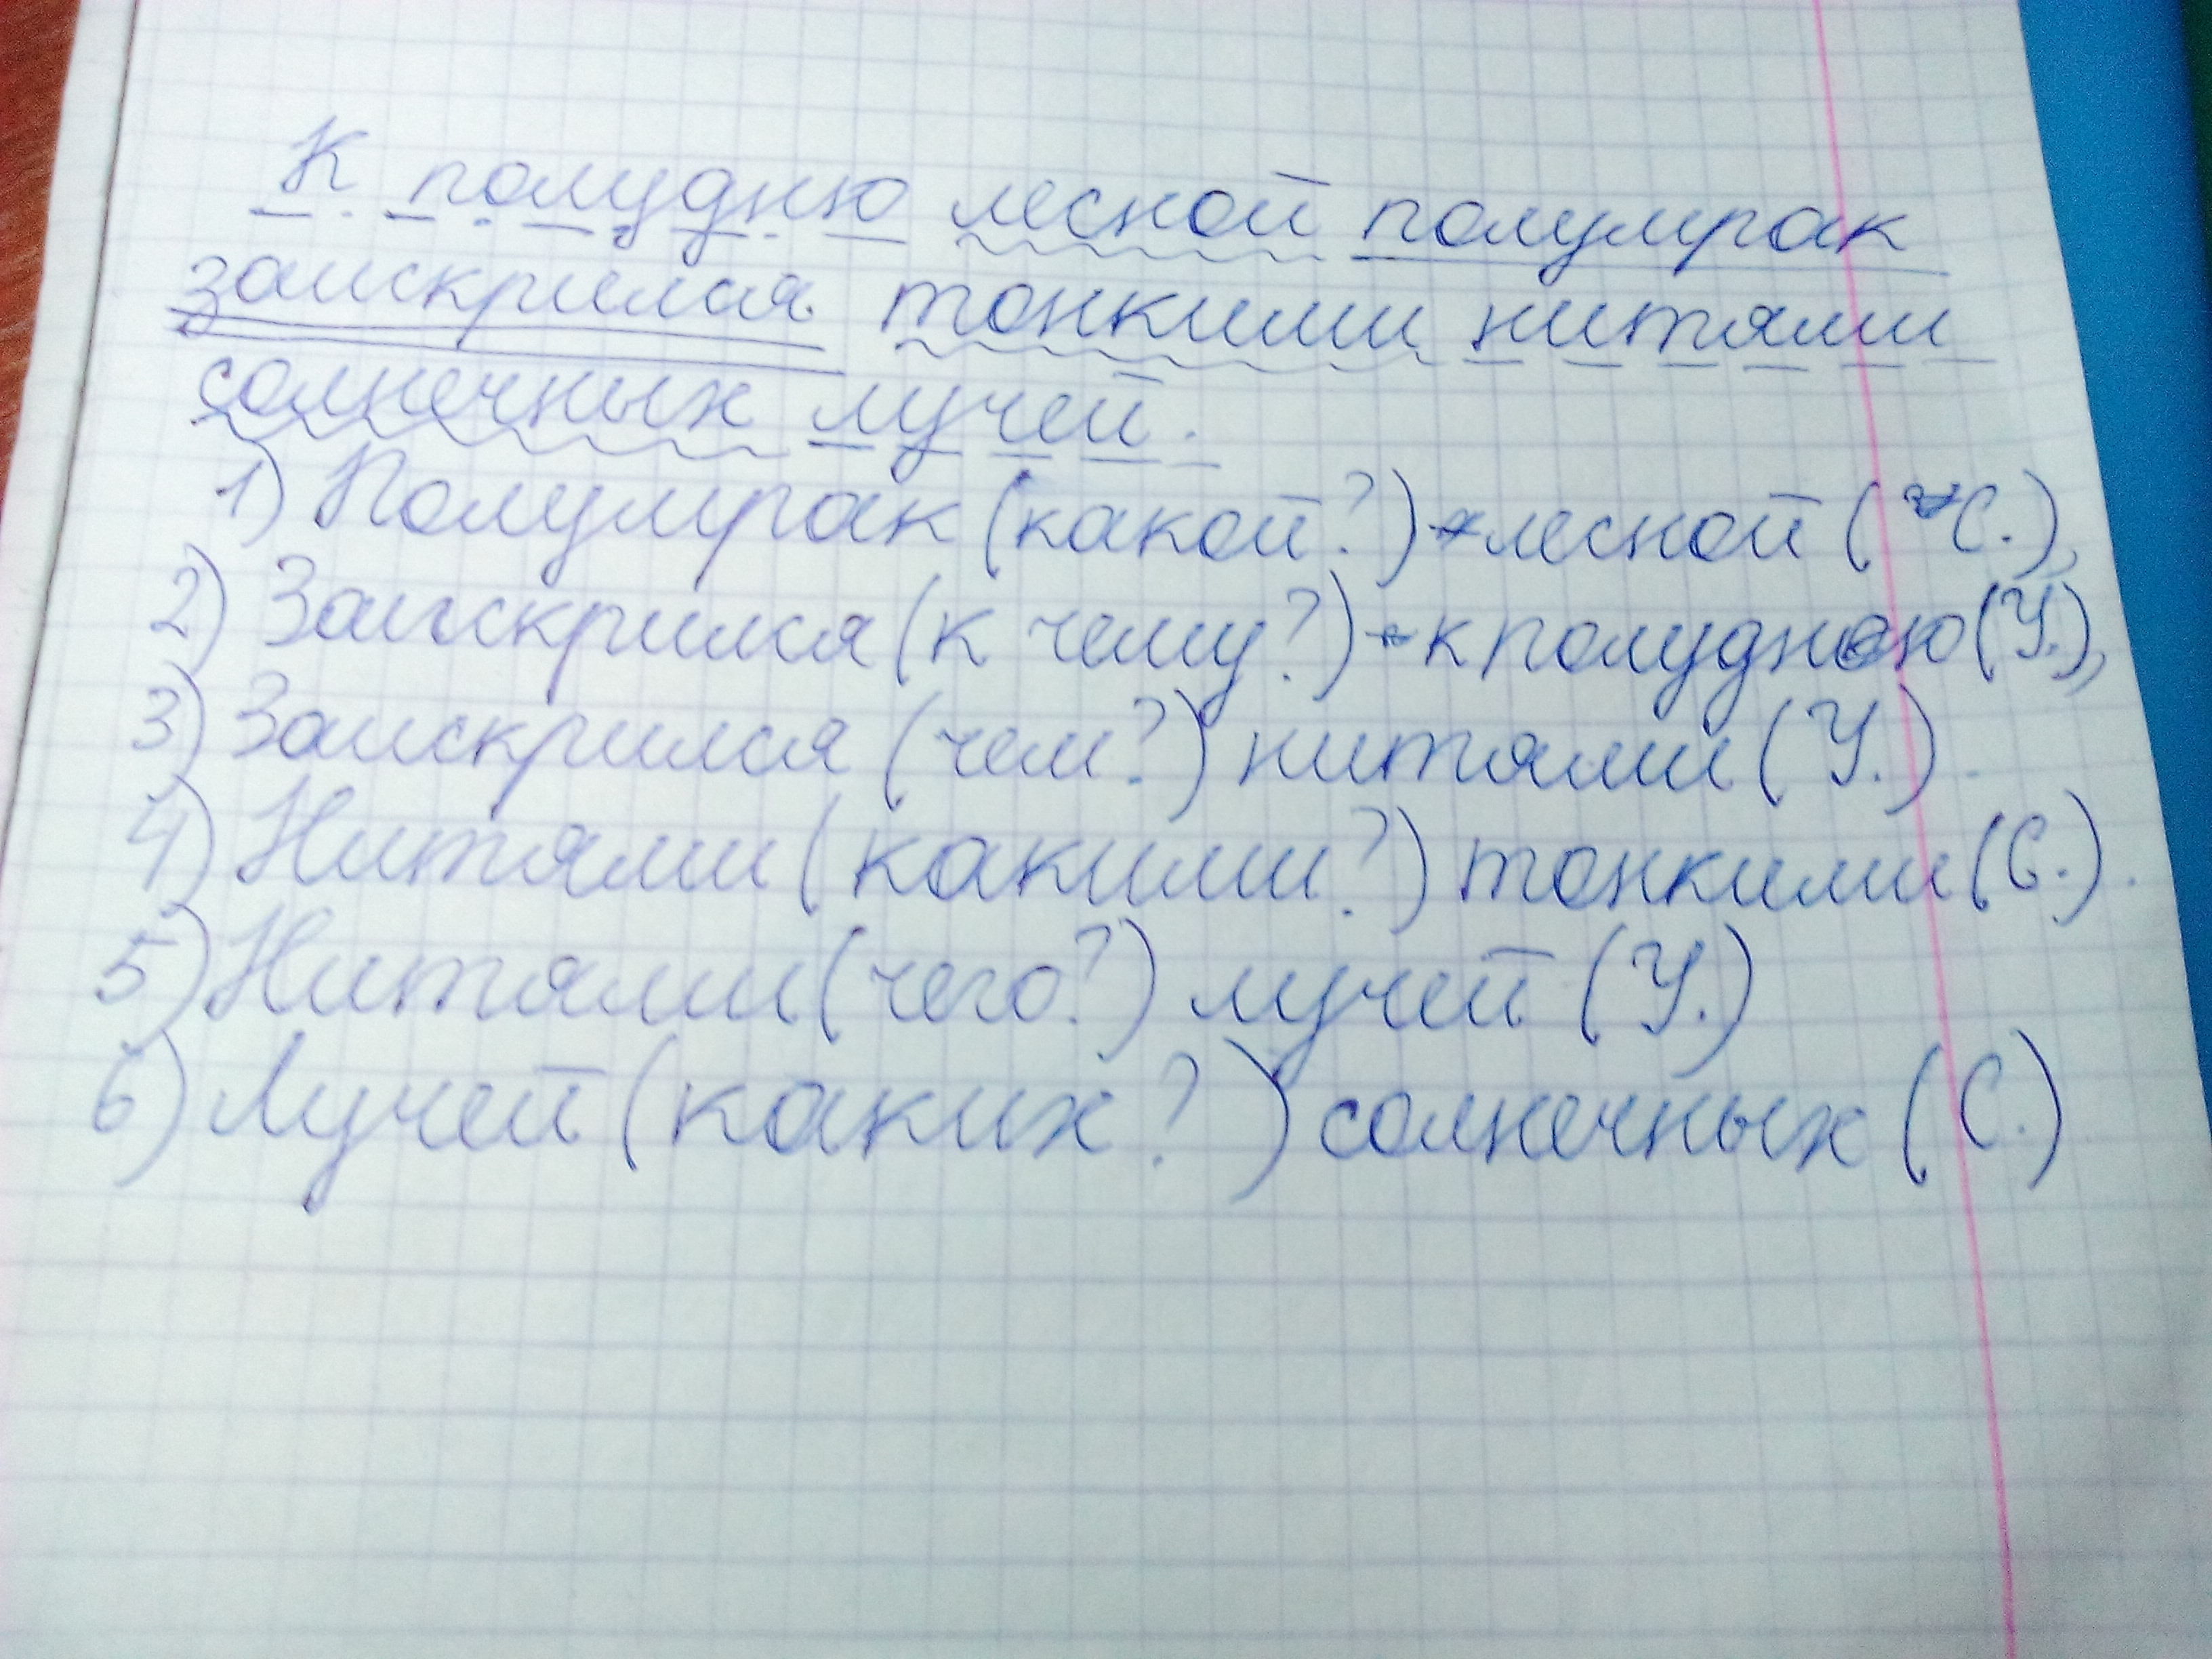 К полудню лесной полумрак
заискрился тонкими нитями
солнечных лучей.
1) Полумрак (какой?) лесной (С.),
2) Заискрился (к чему?) - к полудню (У.),
3) Заискрился (чем?) нитями (У.).
4) Нитями (какими?) тонкими (С.).
5) Нитями (чего?) лучей (У.)
6) Лучей (каких?) солнечных (С.)